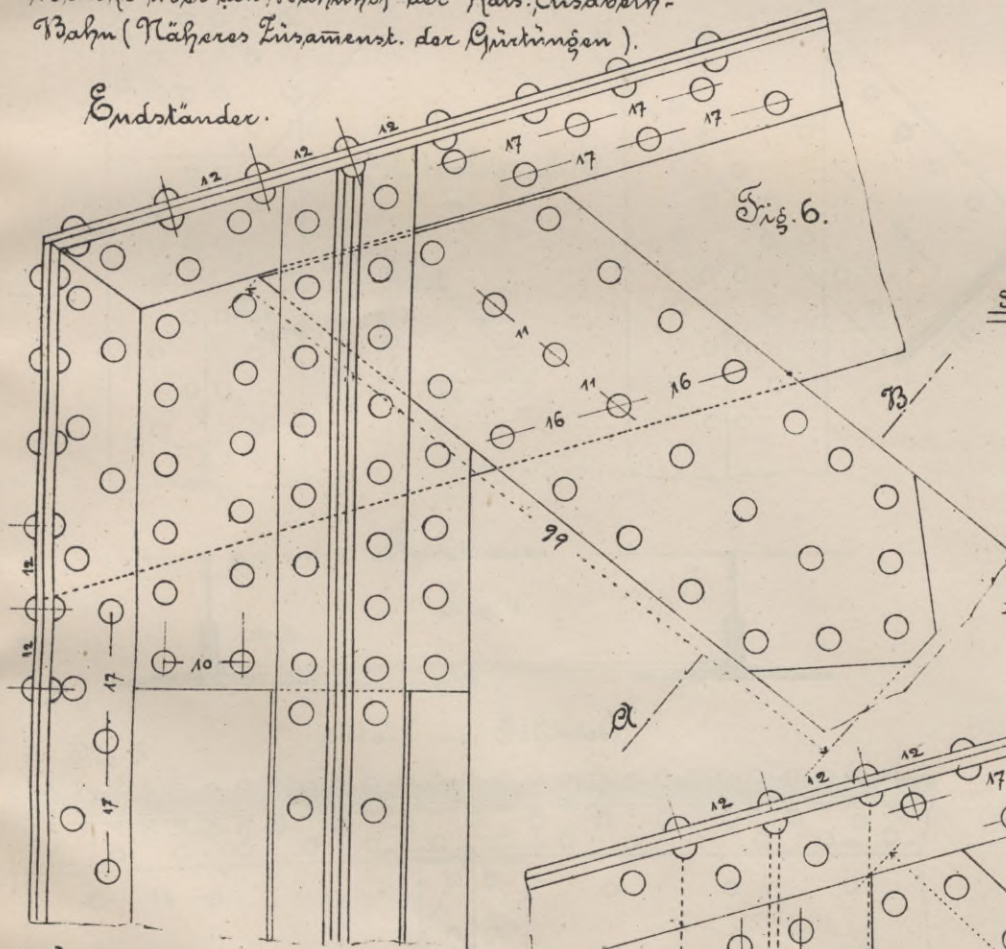 der Kais. Elisabeth-
Bahn (Näheres Züsam̅enst. der Gürtüngen).
Endständer.
Fig. 6.
12
12
12
17
17
17
17
11
11
16
16
B
99
12
12
10
17
17
A
12
12
12
17